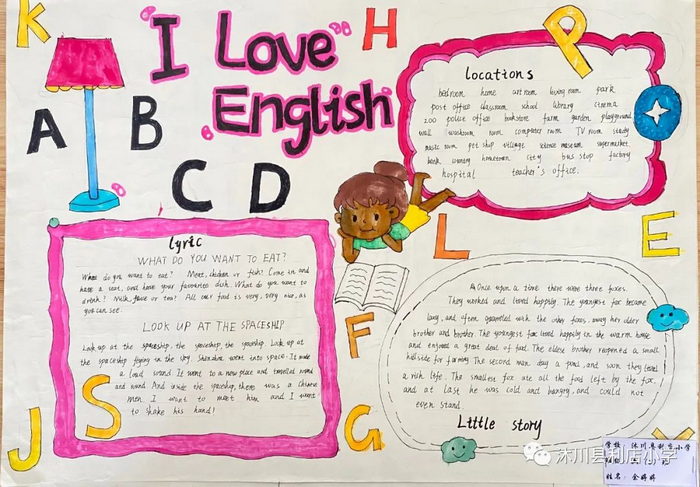 K
I Love
English
H
P
A B
C D
Locations
bedroom home art room living room park
post office classroom school library cinema
zoo police office bookstore farm garden playground
wall washroom room computer room TV room study
music room pet shop village science museum supermarket
bank country hometown city bus stop factory
hospital teacher's office.
L
E
lyric
WHAT DO YOU WANT TO EAT?
What do you want to eat? Meat, chicken or fish? Come in and
have a seat, and have your favourite dish. What do you want to
drink? Milk, juice or tea? All our food is very, very nice, as
you can see.
LOOK UP AT THE SPACESHIP
Look up at the spaceship, the spaceship, the spaceship. Look up at
the spaceship flying in the sky. Shenzhou went into space. It made
a loud sound. It went to a new place and travelled round
and round. And inside the spaceship, there was a Chinese
men. I want to meet him and I want
to shake his hand!
F
S
G
J
Once upon a time there were three foxes.
They worked and lived happily. The youngest fox became
lazy, and often quarreled with the other foxes, away her older
brother and brother. The youngest fox lived happily in the warm house
and enjoyed a great deal of food. The eldest brother reopened a small
hillside for farming. The second man dug a pond, and soon they lived
a rich life. The smallest fox ate all the food left by the fox,
and at last he was cold and hungry, and could not
even stand.
Little story
学校: 沐川县利店小学
姓名: 余婷婷
沐川县利店小学